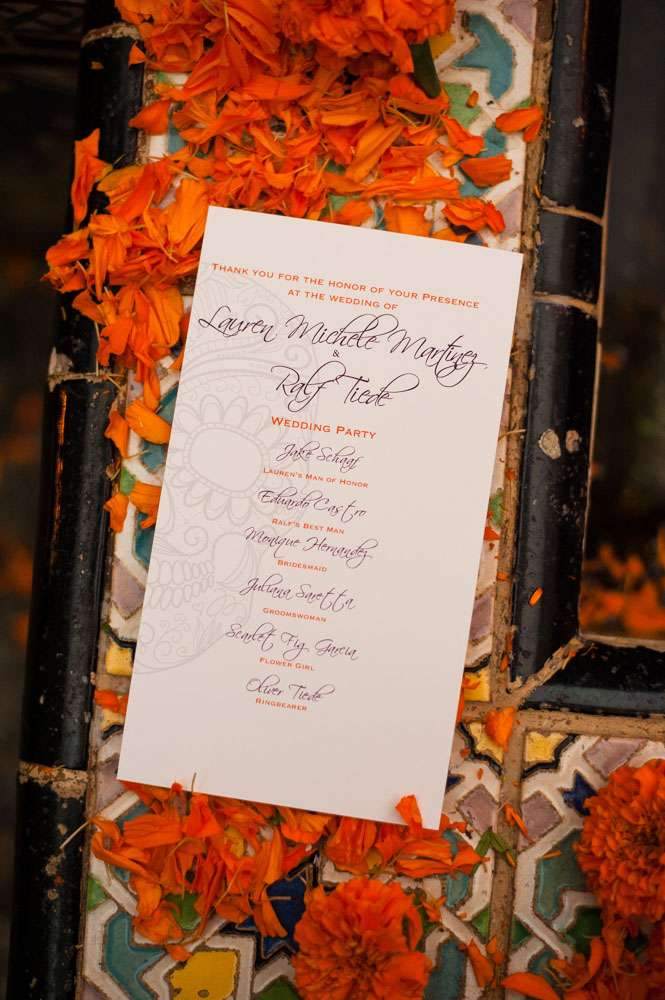 Thank you for the honor of your Presence
at the wedding of
Lauren Michele Martinez
&
Ralf Tiede
Wedding Party
Jake Schaaf
Lauren's Man of Honor
Eduardo Castro
Ralf's Best Man
Monique Hernandez
Bridesmaid
Juliana Saretta
Groomswoman
Scarlet Fig Garcia
Flower Girl
Oliver Tiede
Ringbearer